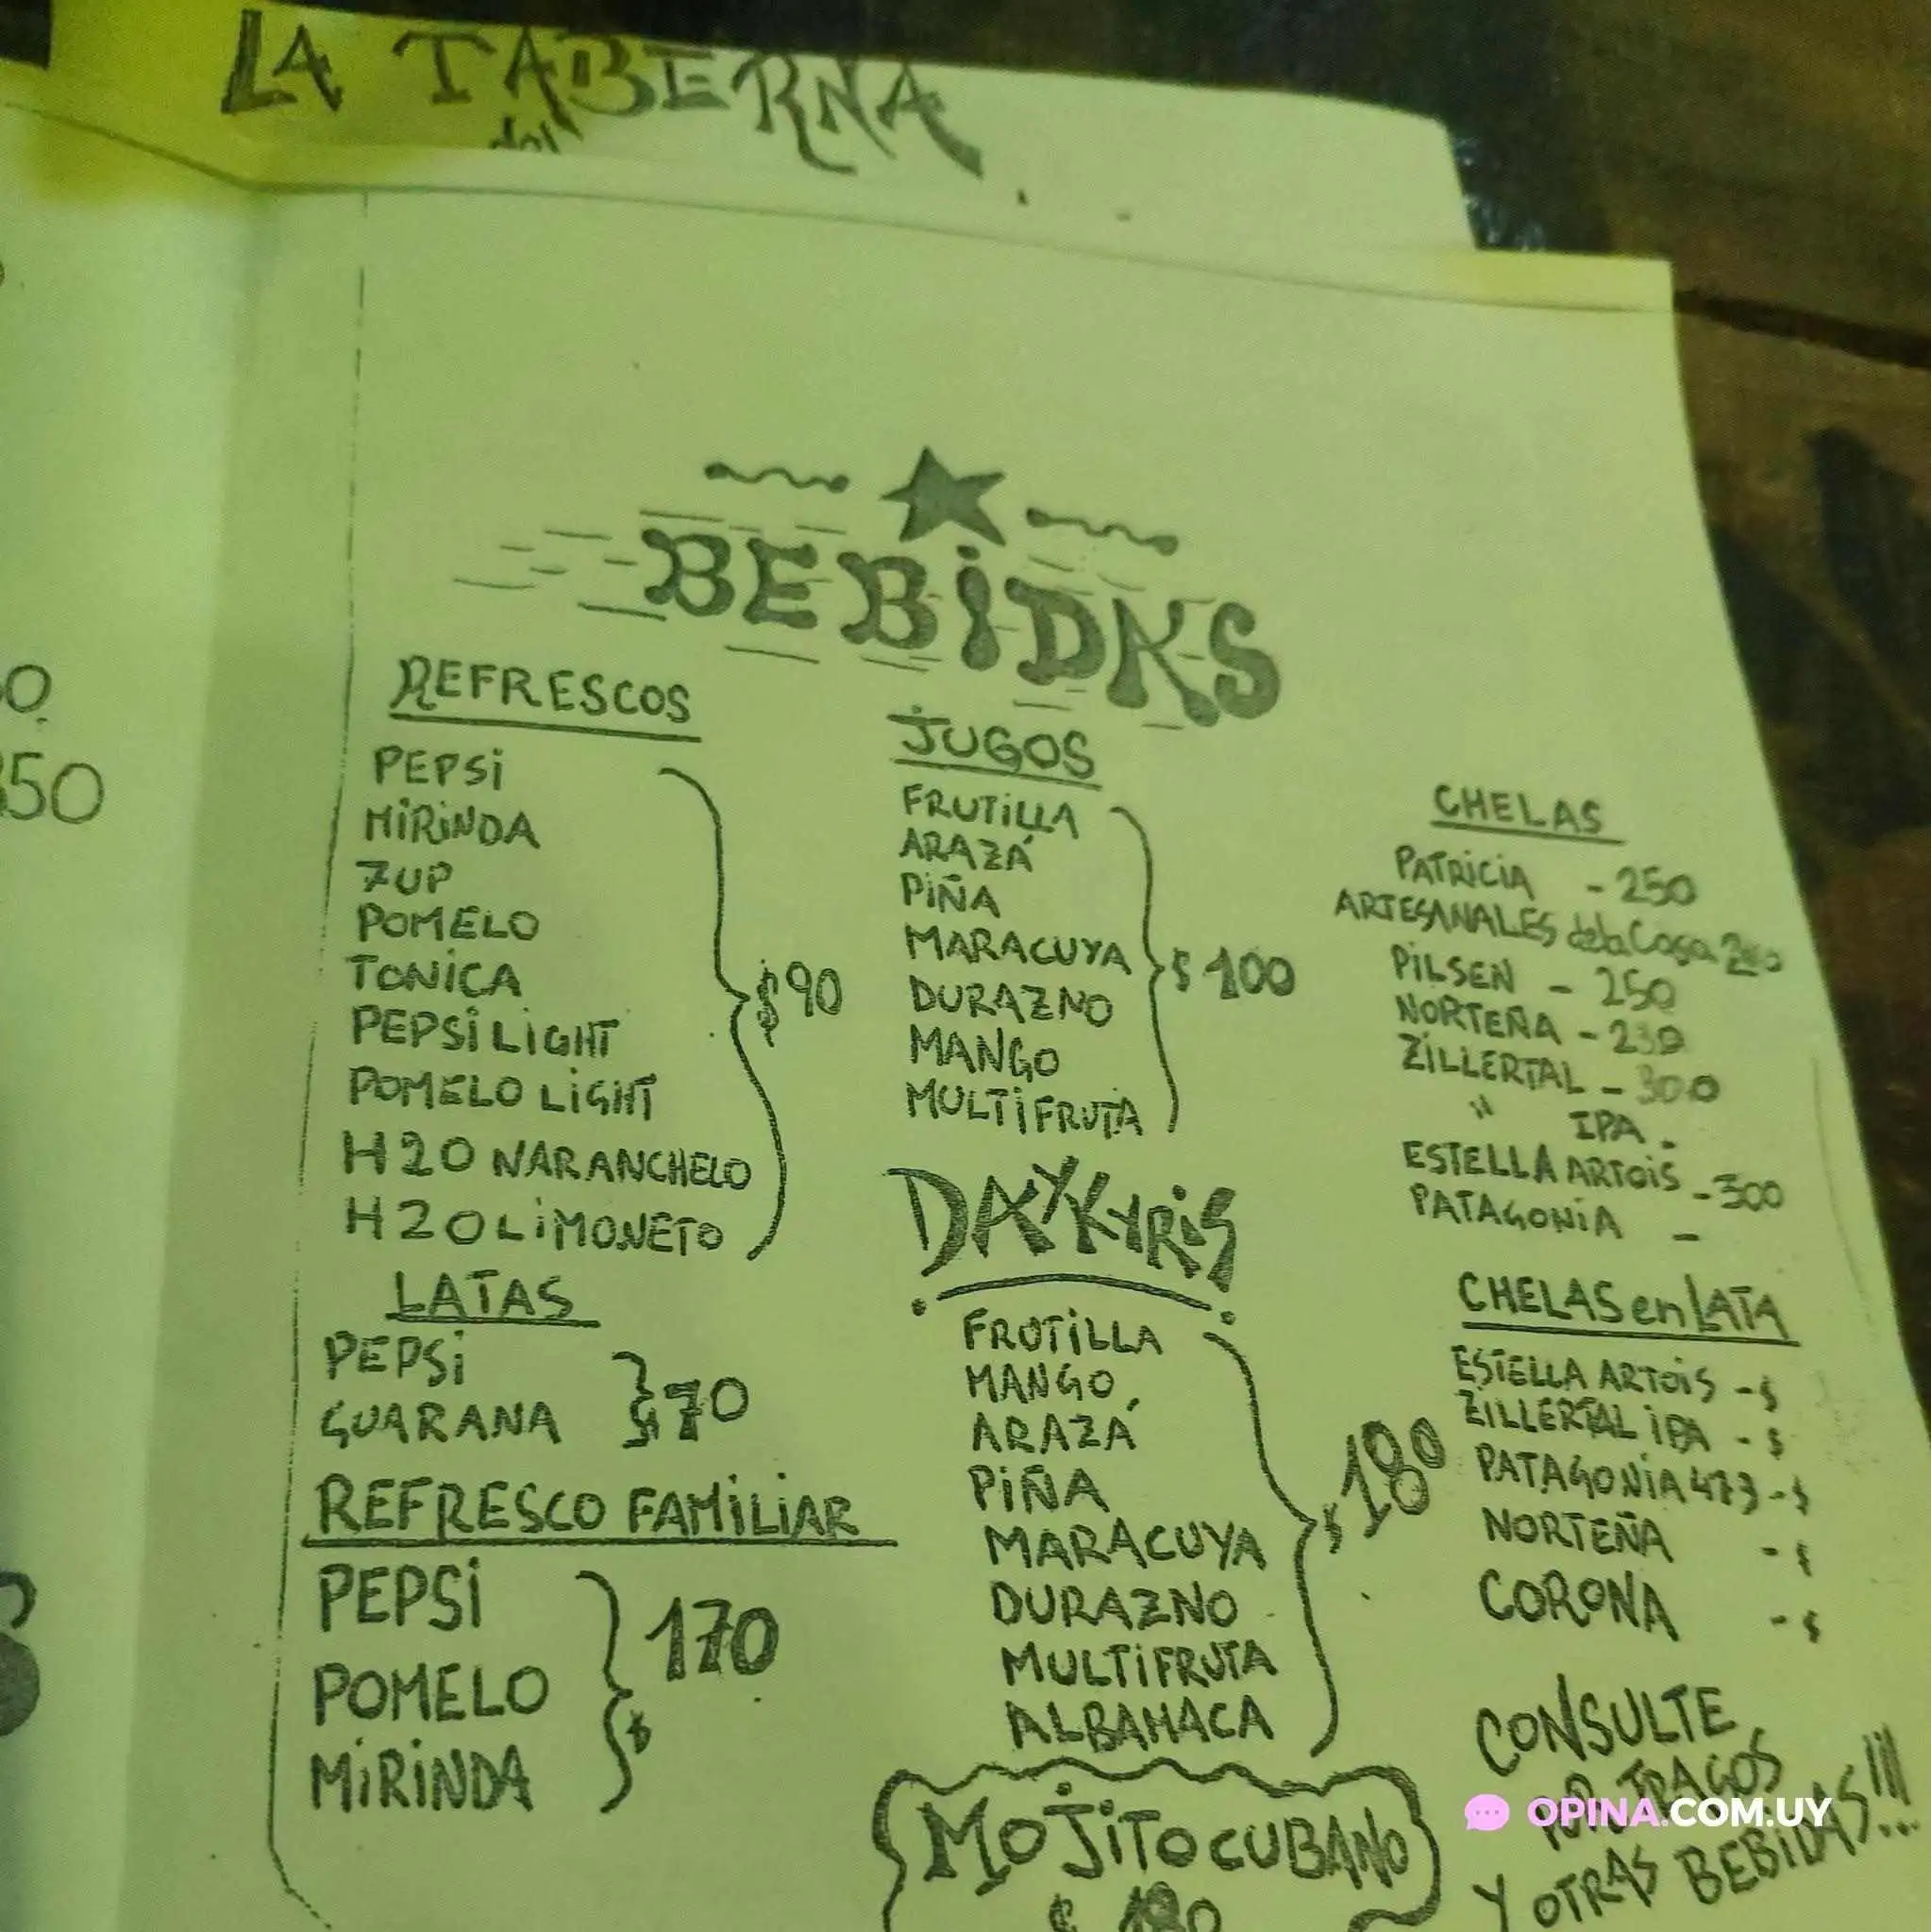 LA TABERNA
del
50
BEBiDAS
REFRESCOS
PEPSi
MiRiNDA
7UP
POMELO
TONiCA
PEPSi LiGHT
POMELO LiGHT
H2O NARANCHELO
H2O LiMONETO
$90
LATAS
PEPSi
GUARANA
$70
REFRESCO FAMiLiAR
PEPSi
POMELO
MiRiNDA
$ 170
JUGOS
FRUTiLLA
ARAZÁ
PiÑA
MARACUYA
DURAZNO
MANGO
MULTiFRUTA
$ 100
DAYKYRiS
FRUTiLLA
MANGO
ARAZÁ
PiÑA
MARACUYA
DURAZNO
MULTiFRUTA
ALBAHACA
$ 180
MOJiTO CUBANO
$ 180
CHELAS
PATRiCiA - 250
ARTESANALES de la Casa
PiLSEN - 250
NORTEÑA - 230
ZiLLERTAL - 300
" IPA -
ESTELLA ARTOiS - 300
PATAGONiA -
CHELAS en LATA
ESTELLA ARTOiS - $
ZiLLERTAL iPA - $
PATAGONiA 473 - $
NORTEÑA - $
CORONA - $
CONSULTE
POR TRAGOS
Y OTRAS BEBiDAS!!!
OPINA.COM.UY